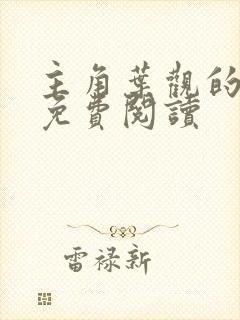 主角葉觀的
免費閱讀
雷禄新